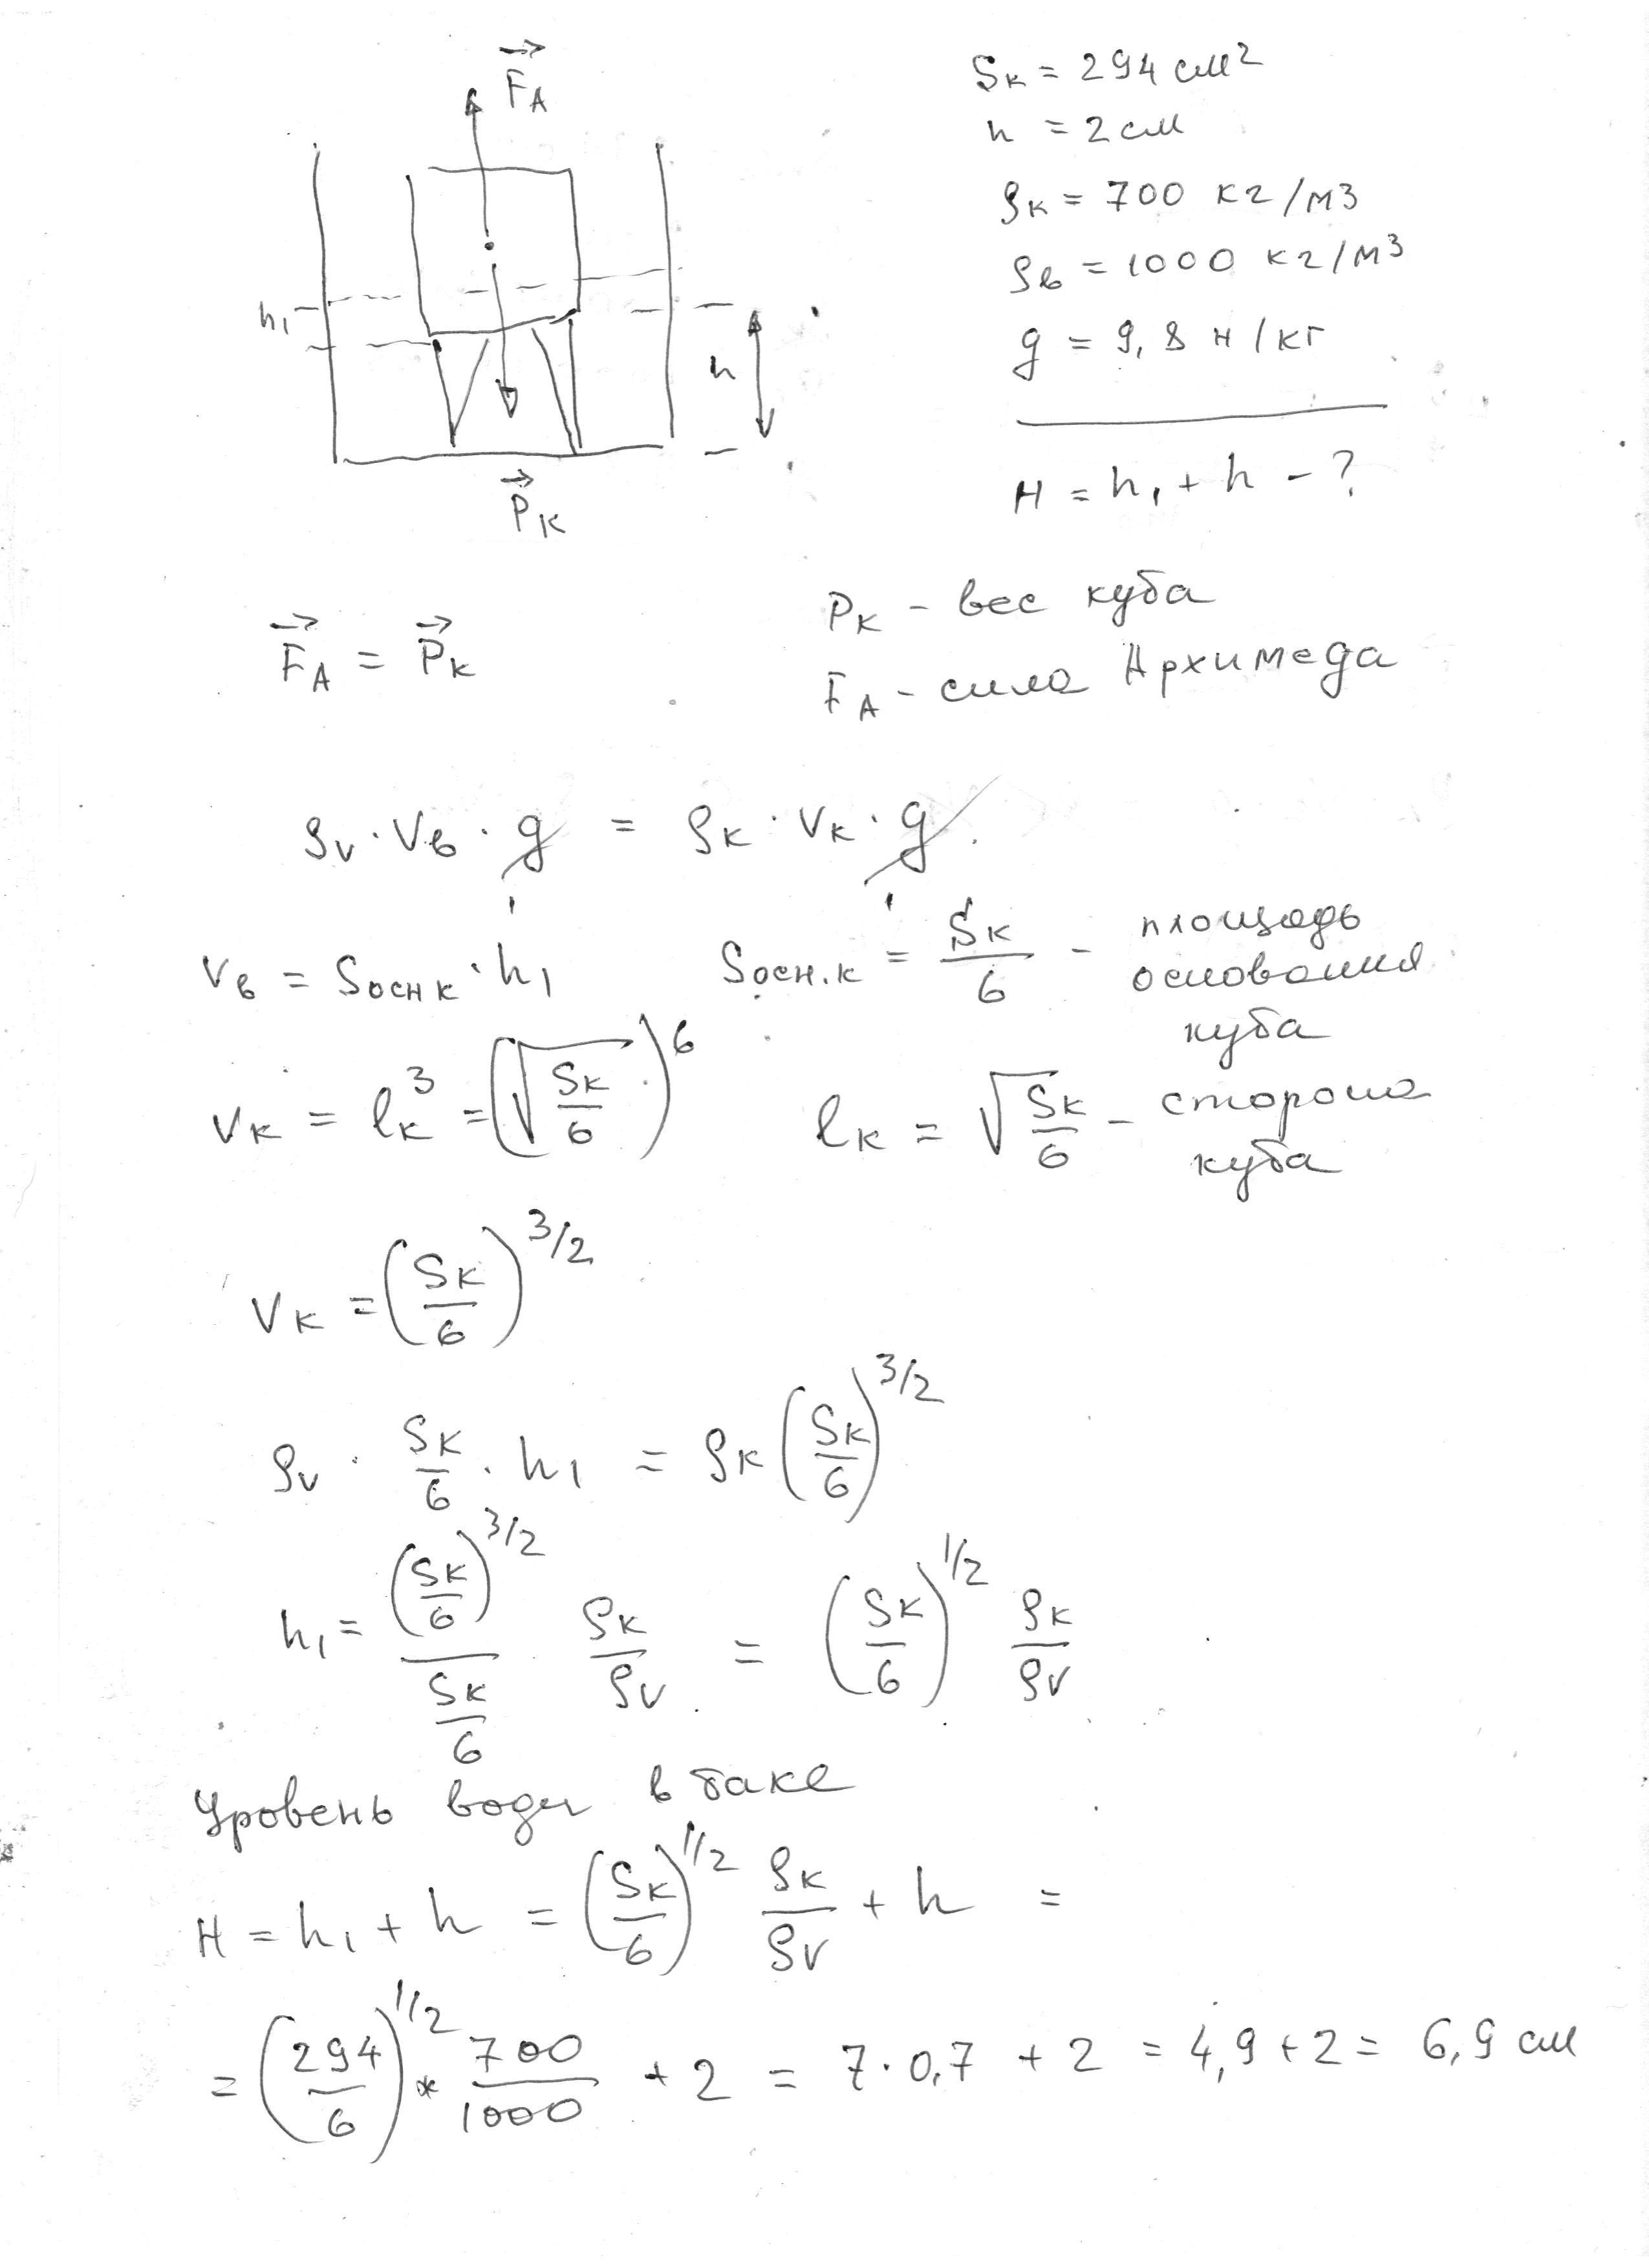 F⃗A
Sк = 294 см²
h = 2 см
ρк = 700 кг/м3
ρв = 1000 кг/м³
g = 9,8 н/кг
h₁
h
P⃗к
H = h₁ + h - ?
F⃗A = P⃗к
Pк - вес куба
FA - сила Архимеда
ρv · Vв · g = ρк · Vк · g
Vв = Sосн к · h₁
Sосн.к = Sк/6 - площадь основания куба
Vк = lк³ = (√(Sк/6))⁶
lк = √(Sк/6) - сторона куба
Vк = (Sк/6)^3/2
ρv · Sк/6 · h₁ = ρк (Sк/6)^3/2
h₁ = (Sк/6)^3/2 / (Sк/6) ρк/ρv = (Sк/6)^1/2 ρк/ρv
Уровень воды в баке
H = h₁ + h = (Sк/6)^1/2 ρк/ρv + h =
= (294/6)^1/2 * 700/1000 + 2 = 7 · 0,7 + 2 = 4,9 + 2 = 6,9 см